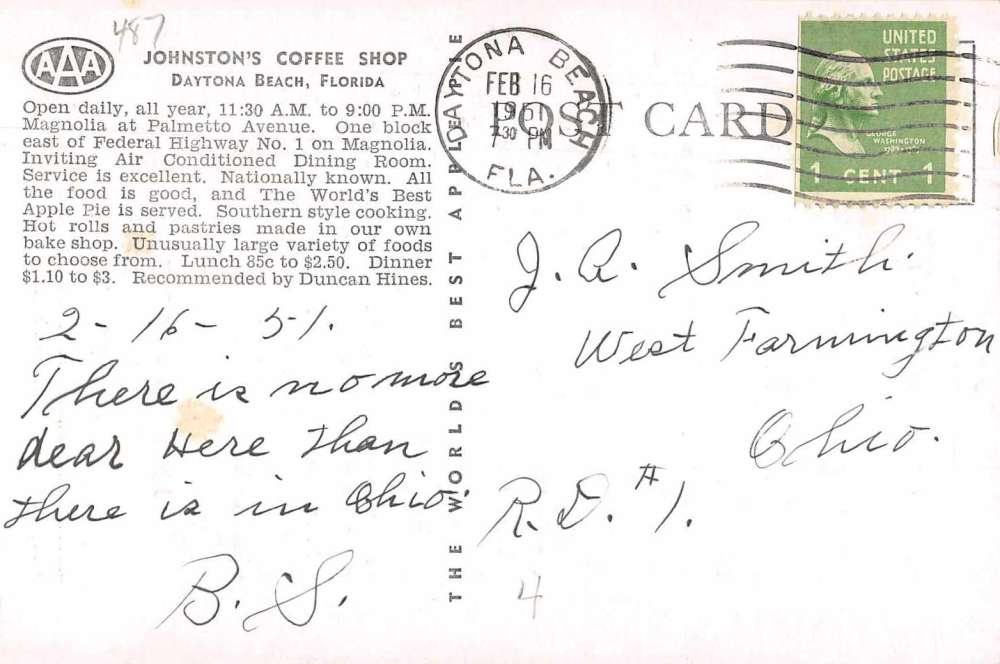 487
AAA
JOHNSTON'S COFFEE SHOP
DAYTONA BEACH, FLORIDA
Open daily, all year, 11:30 A.M. to 9:00 P.M.
Magnolia at Palmetto Avenue. One block
east of Federal Highway No. 1 on Magnolia.
Inviting Air Conditioned Dining Room.
Service is excellent. Nationally known. All
the food is good, and The World's Best
Apple Pie is served. Southern style cooking.
Hot rolls and pastries made in our own
bake shop. Unusually large variety of foods
to choose from. Lunch 85c to $2.50. Dinner
$1.10 to $3. Recommended by Duncan Hines.
2-16-51.
There is no more
dear Here than
there is in Ohio.
B. S.
THE WORLDS BEST APPLE PIE
DAYTONA BEACH
FEB 16
1951
7 30 PM
FLA.
POST CARD
UNITED
STATES
POSTAGE
GEORGE
WASHINGTON
1789-1797
1 CENT 1
J. A. Smith.
West Farmington
Ohio.
R.D. #1.
4